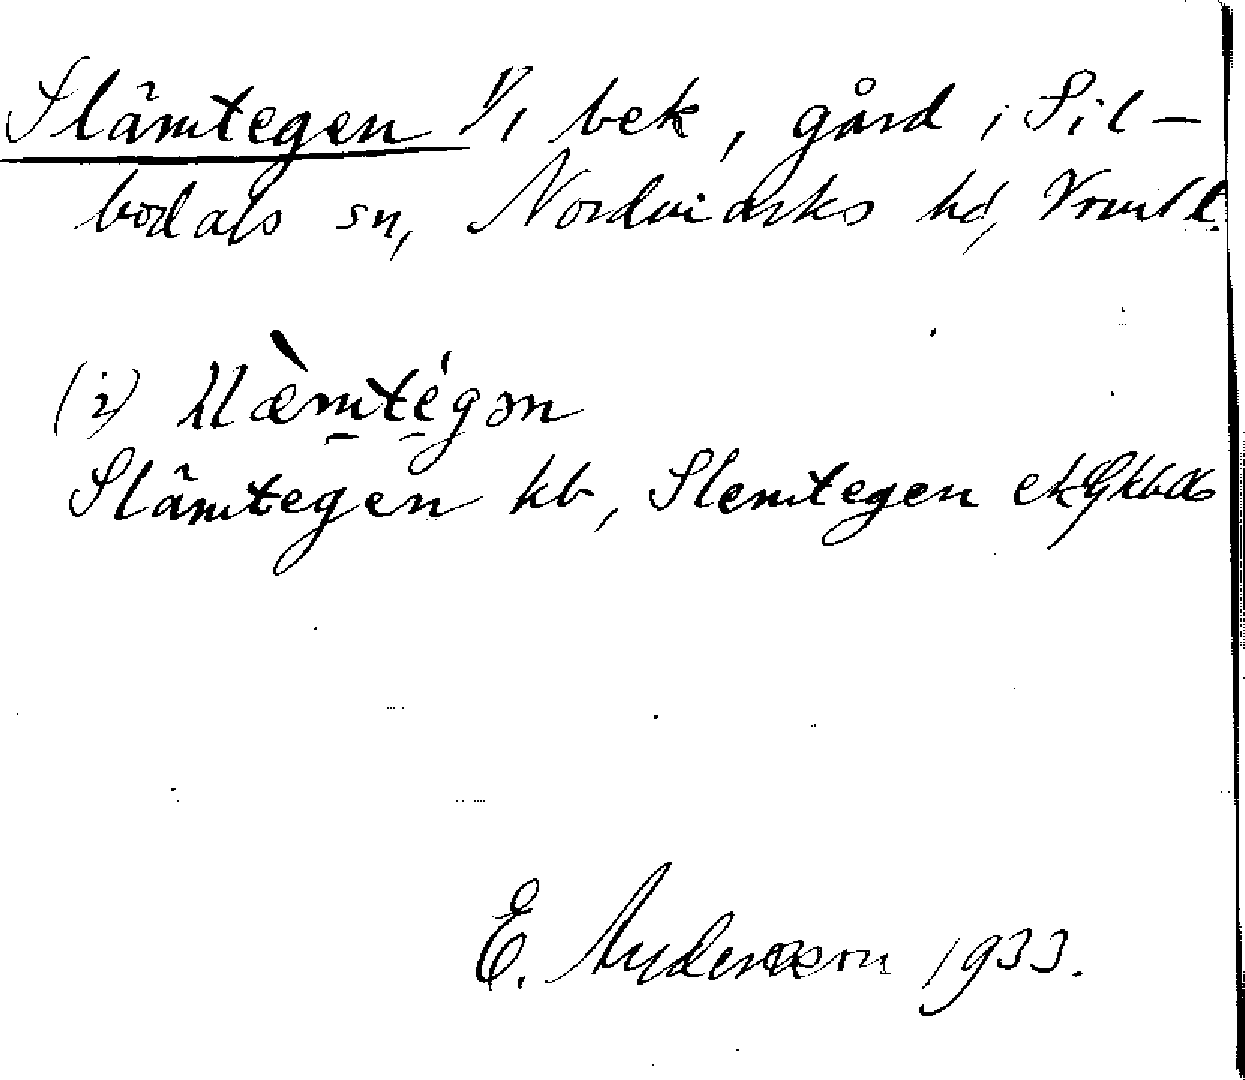 Slämtegen 1/1 bek, gård i Sil-
bodals sn, Nordmarks hd, Vrml l.
(i) slæ̀mtégən
Slämtegen kb, Slemtegen
E. Andersson 1933.